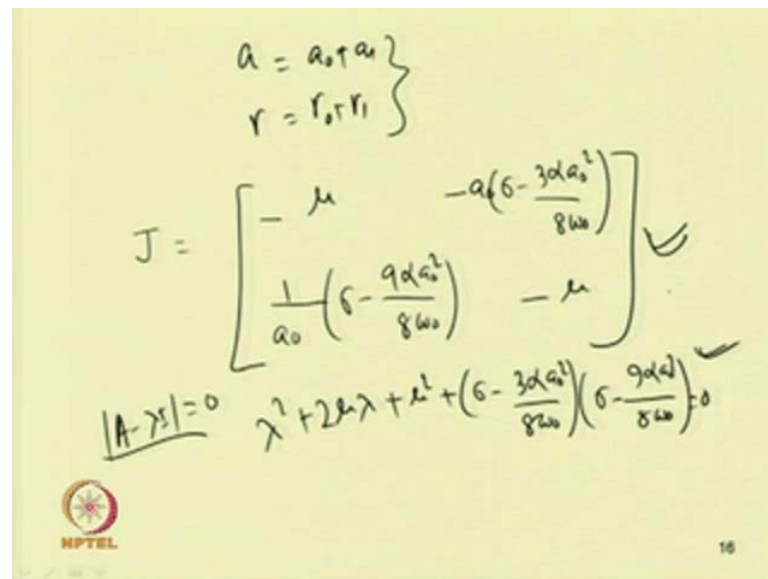 a = a₀+a₁
r = r₀+r₁
J = [ -μ  -a₀(σ - 3αa₀²/8ω₀)
1/a₀ (σ - 9αa₀²/8ω₀)  -μ ]
|A-λI|=0  λ²+2μλ+μ²+(σ - 3αa₀²/8ω₀)(σ - 9αa₀²/8ω₀)=0
NPTEL
16